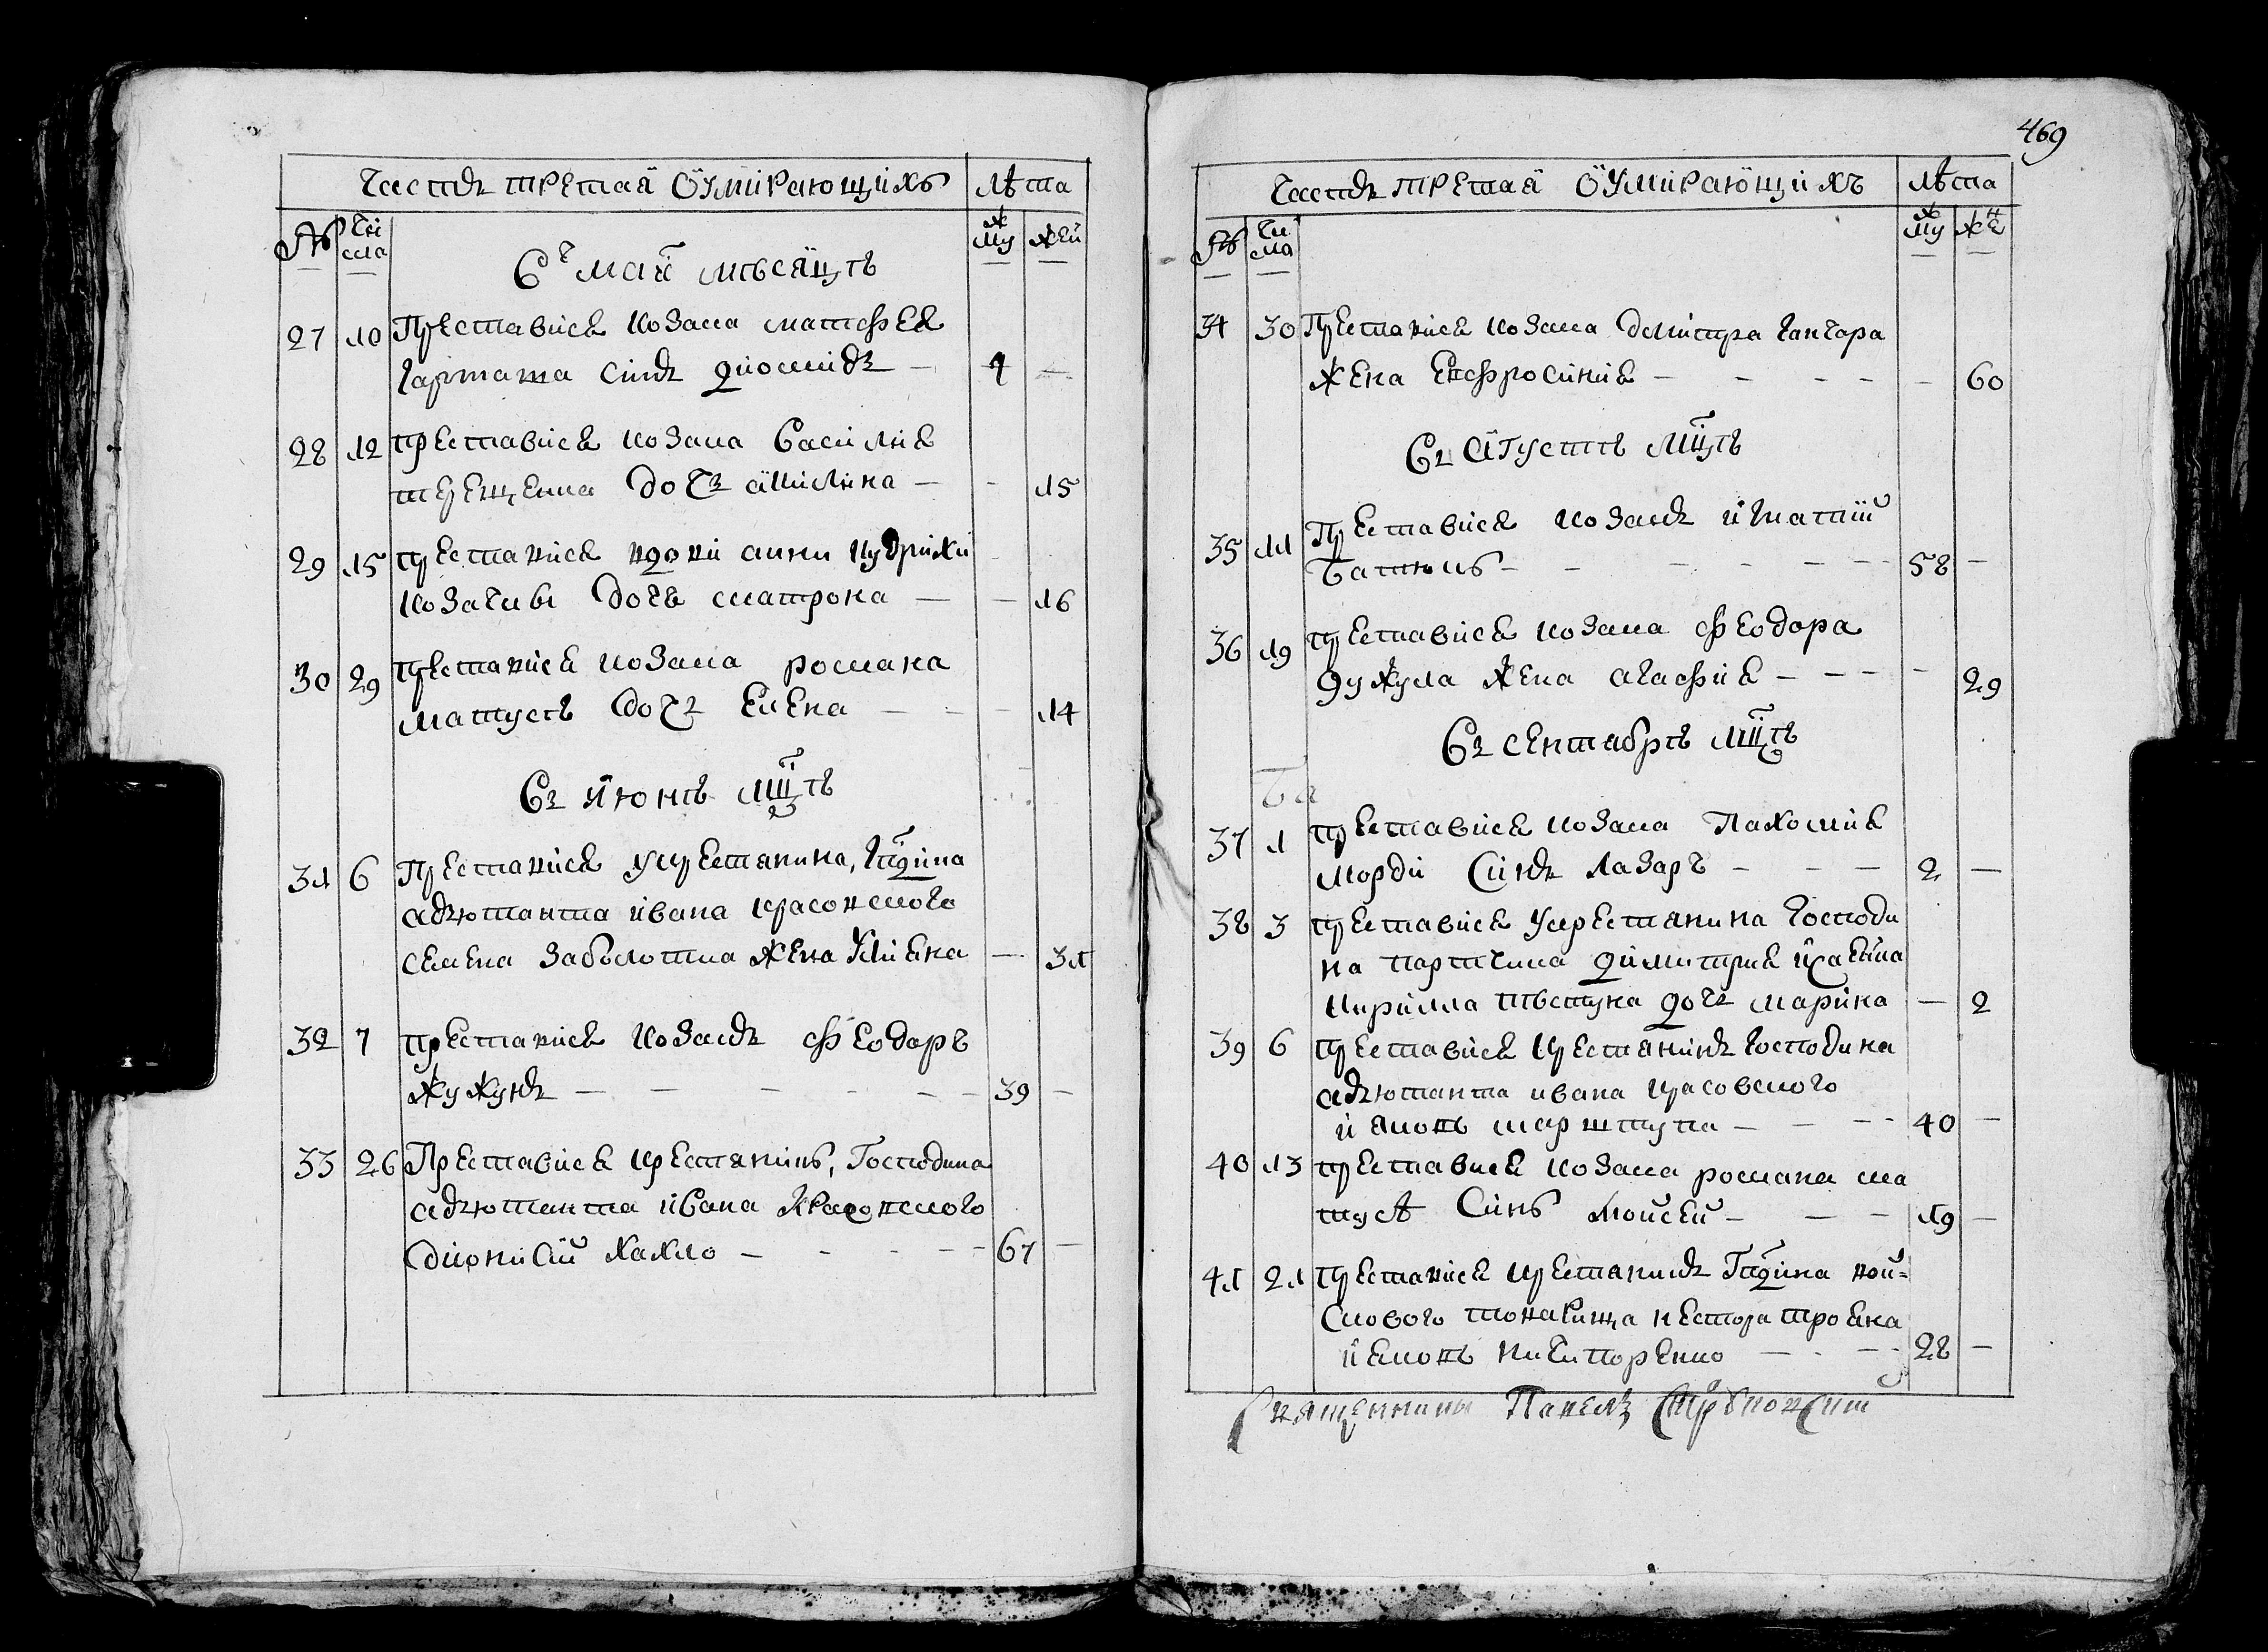 Часть третая умирающихъ лѣта
№ чи сла му ж жен
Въ маи мѣсяцѣ
27 10 Преставися козака матфея
сынъ диомидъ — 4 —
28 12 преставися козака василия
терещенка дочъ акилина — - 15
29 15 преставися вдови анни кудрихи
козачки дочь матрона — — 16
30 29 преставися козака романа
матусѣ дочъ елена — — 14
Въ июнѣ мцѣ
31 6 Преставися крестянина, гпдина
адъютанта ивана красовского
семена заболотка жена улияна — 31
32 7 преставися козакъ феодоръ
жужукъ — — — — 39 —
33 26 Преставися крестянинъ, Господина
адъютанта ивана красовского
дионисий хахло — - - - 67 —
469
Часть третая умирающихъ лѣта
№ чи сла му ж же н
34 30 Преставися козака дмитра ганчара
жена евфросиния — - - - - 60
Въ августѣ мцѣ
35 11 Преставися козакъ игнатий
- - - - - 58 —
36 19 преставися козака феодора
жена агафия - - - - 29
Въ сентябрѣ мцѣ
37 1 преставися козака пахомия
сынъ лазаръ - - - 2 —
38 3 преставися крестянина господи
на димитрия
кирилла дочъ марина — 2
39 6 преставися крестянинъ господина
адъютанта ивана красовского
иаковъ — — - - 40 —
40 13 преставися козака романа ма
тусѣ сынъ моисей - — - 19 —
41 21 преставися крестянинъ гпдина вой-
скового товарища нестора трояна
иаковъ никифоренко — - - - 28 —
Священникъ Павелъ